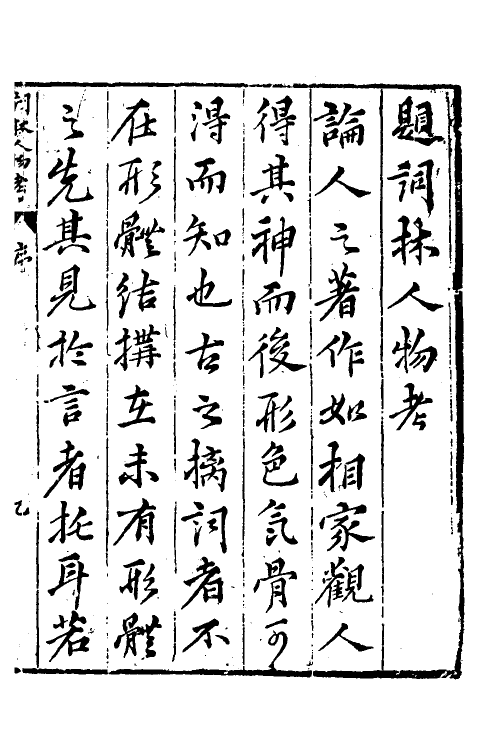 題詞林人物考
論人之著作如相家觀人
得其神而後形色气骨可
得而知也古之摛詞者不
在形體結搆在未有形體
之先其見於言者托耳若
詞林人物考
序
乙